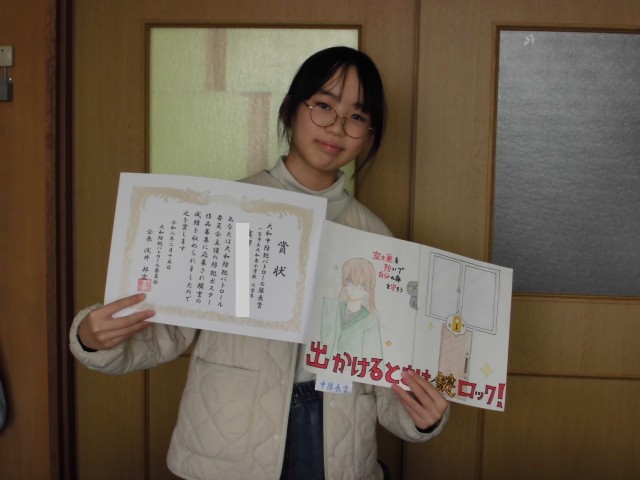 賞状
大和中防犯パトロール隊長賞
あなたは大和防犯パトロール
委員会主催の防犯ポスター
作品募集に応募され頭書の
成績を収められましたので
之を賞します
大和防犯パトロール委員会
会長
空き巣を
防いで
自分の身
を守ろう
出かけるときは鍵ロック!
中隊長賞